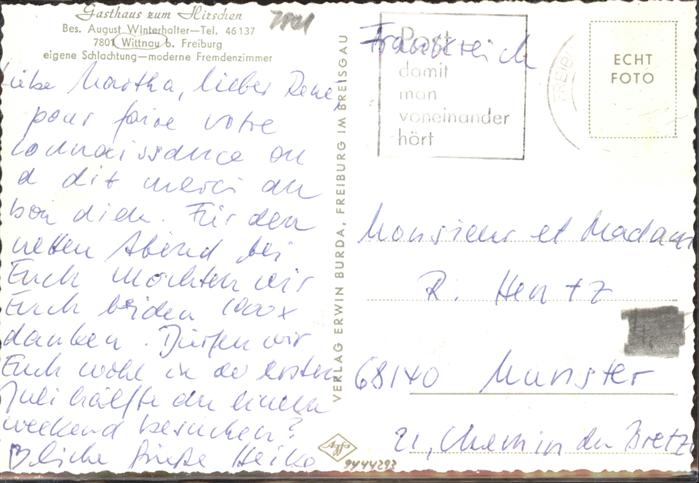 Gasthaus zum Hirschen
Bes. August Winterhalter—Tel. 46137
7801 Wittnau b. Freiburg
eigene Schlachtung—moderne Fremdenzimmer
7801
Liebe Martha, lieber Rene,
pour faire votre
connaissance on
a dit merci au
bon dieu. Für den
netten Abend bei
Euch möchten wir
Euch beiden 1000x
danken. Dürfen wir
Euch wohl in der ersten
Juli hälfte an einem
weekend besuchen?
liche Grüße Heiko
VERLAG ERWIN BURDA, FREIBURG IM BREISGAU
Agfa
9444293
Post
damit
man
voneinander
hört
Frankreich
ECHT
FOTO
Monsieur et Madame
R. Hentz
68140 Munster
21, Chemin du Bretz